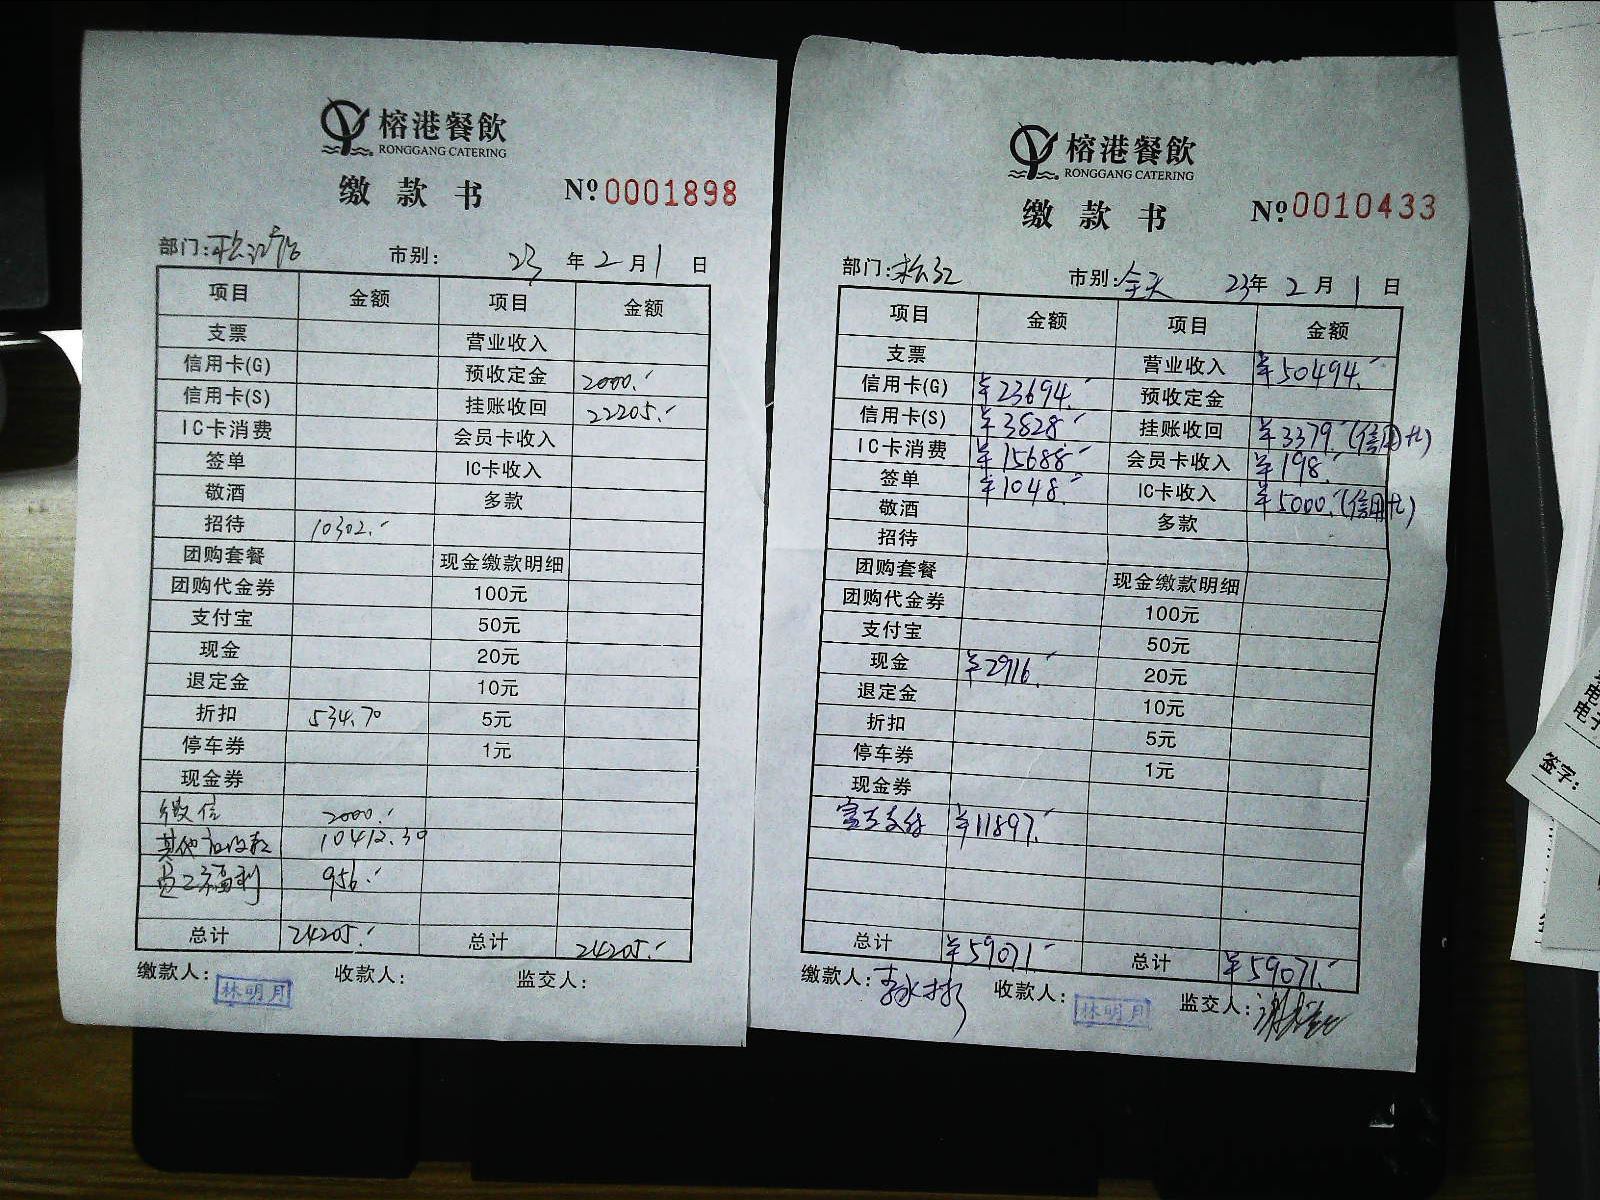 榕港餐飲
RONGGANG CATERING
缴款书 №0001898
部门: 市别: 23年2月1日
项目 金额 项目 金额
支票 营业收入
信用卡(G) 预收定金 2000.-
信用卡(S) 挂账收回 22205.-
IC卡消费 会员卡收入
签单 IC卡收入
敬酒 多款
招待 10302.-
团购套餐 现金缴款明细
团购代金券 100元
支付宝 50元
现金 20元
退定金 10元
折扣 534.70 5元
停车券 1元
现金券
微信 2000.-
其他应收款 10412.30
员工福利 956.-
总计 24205.- 总计 24205.-
缴款人: 林明月 收款人: 监交人:
榕港餐飲
RONGGANG CATERING
缴款书 №0010433
部门:松江 市别:全天 23年2月1日
项目 金额 项目 金额
支票 营业收入 ¥50494.-
信用卡(G) ¥23694.- 预收定金
信用卡(S) ¥3828.- 挂账收回 ¥3379.(信用卡)
IC卡消费 ¥15688.- 会员卡收入 ¥198.-
签单 ¥1048.- IC卡收入 ¥5000.(信用卡)
敬酒 多款
招待
团购套餐 现金缴款明细
团购代金券 100元
支付宝 50元
现金 ¥2916.- 20元
退定金 10元
折扣 5元
停车券 1元
现金券
富友支付 ¥11897.-
总计 ¥59071.- 总计 ¥59071.-
缴款人: 收款人: 林明月 监交人:
电
电子
签字: